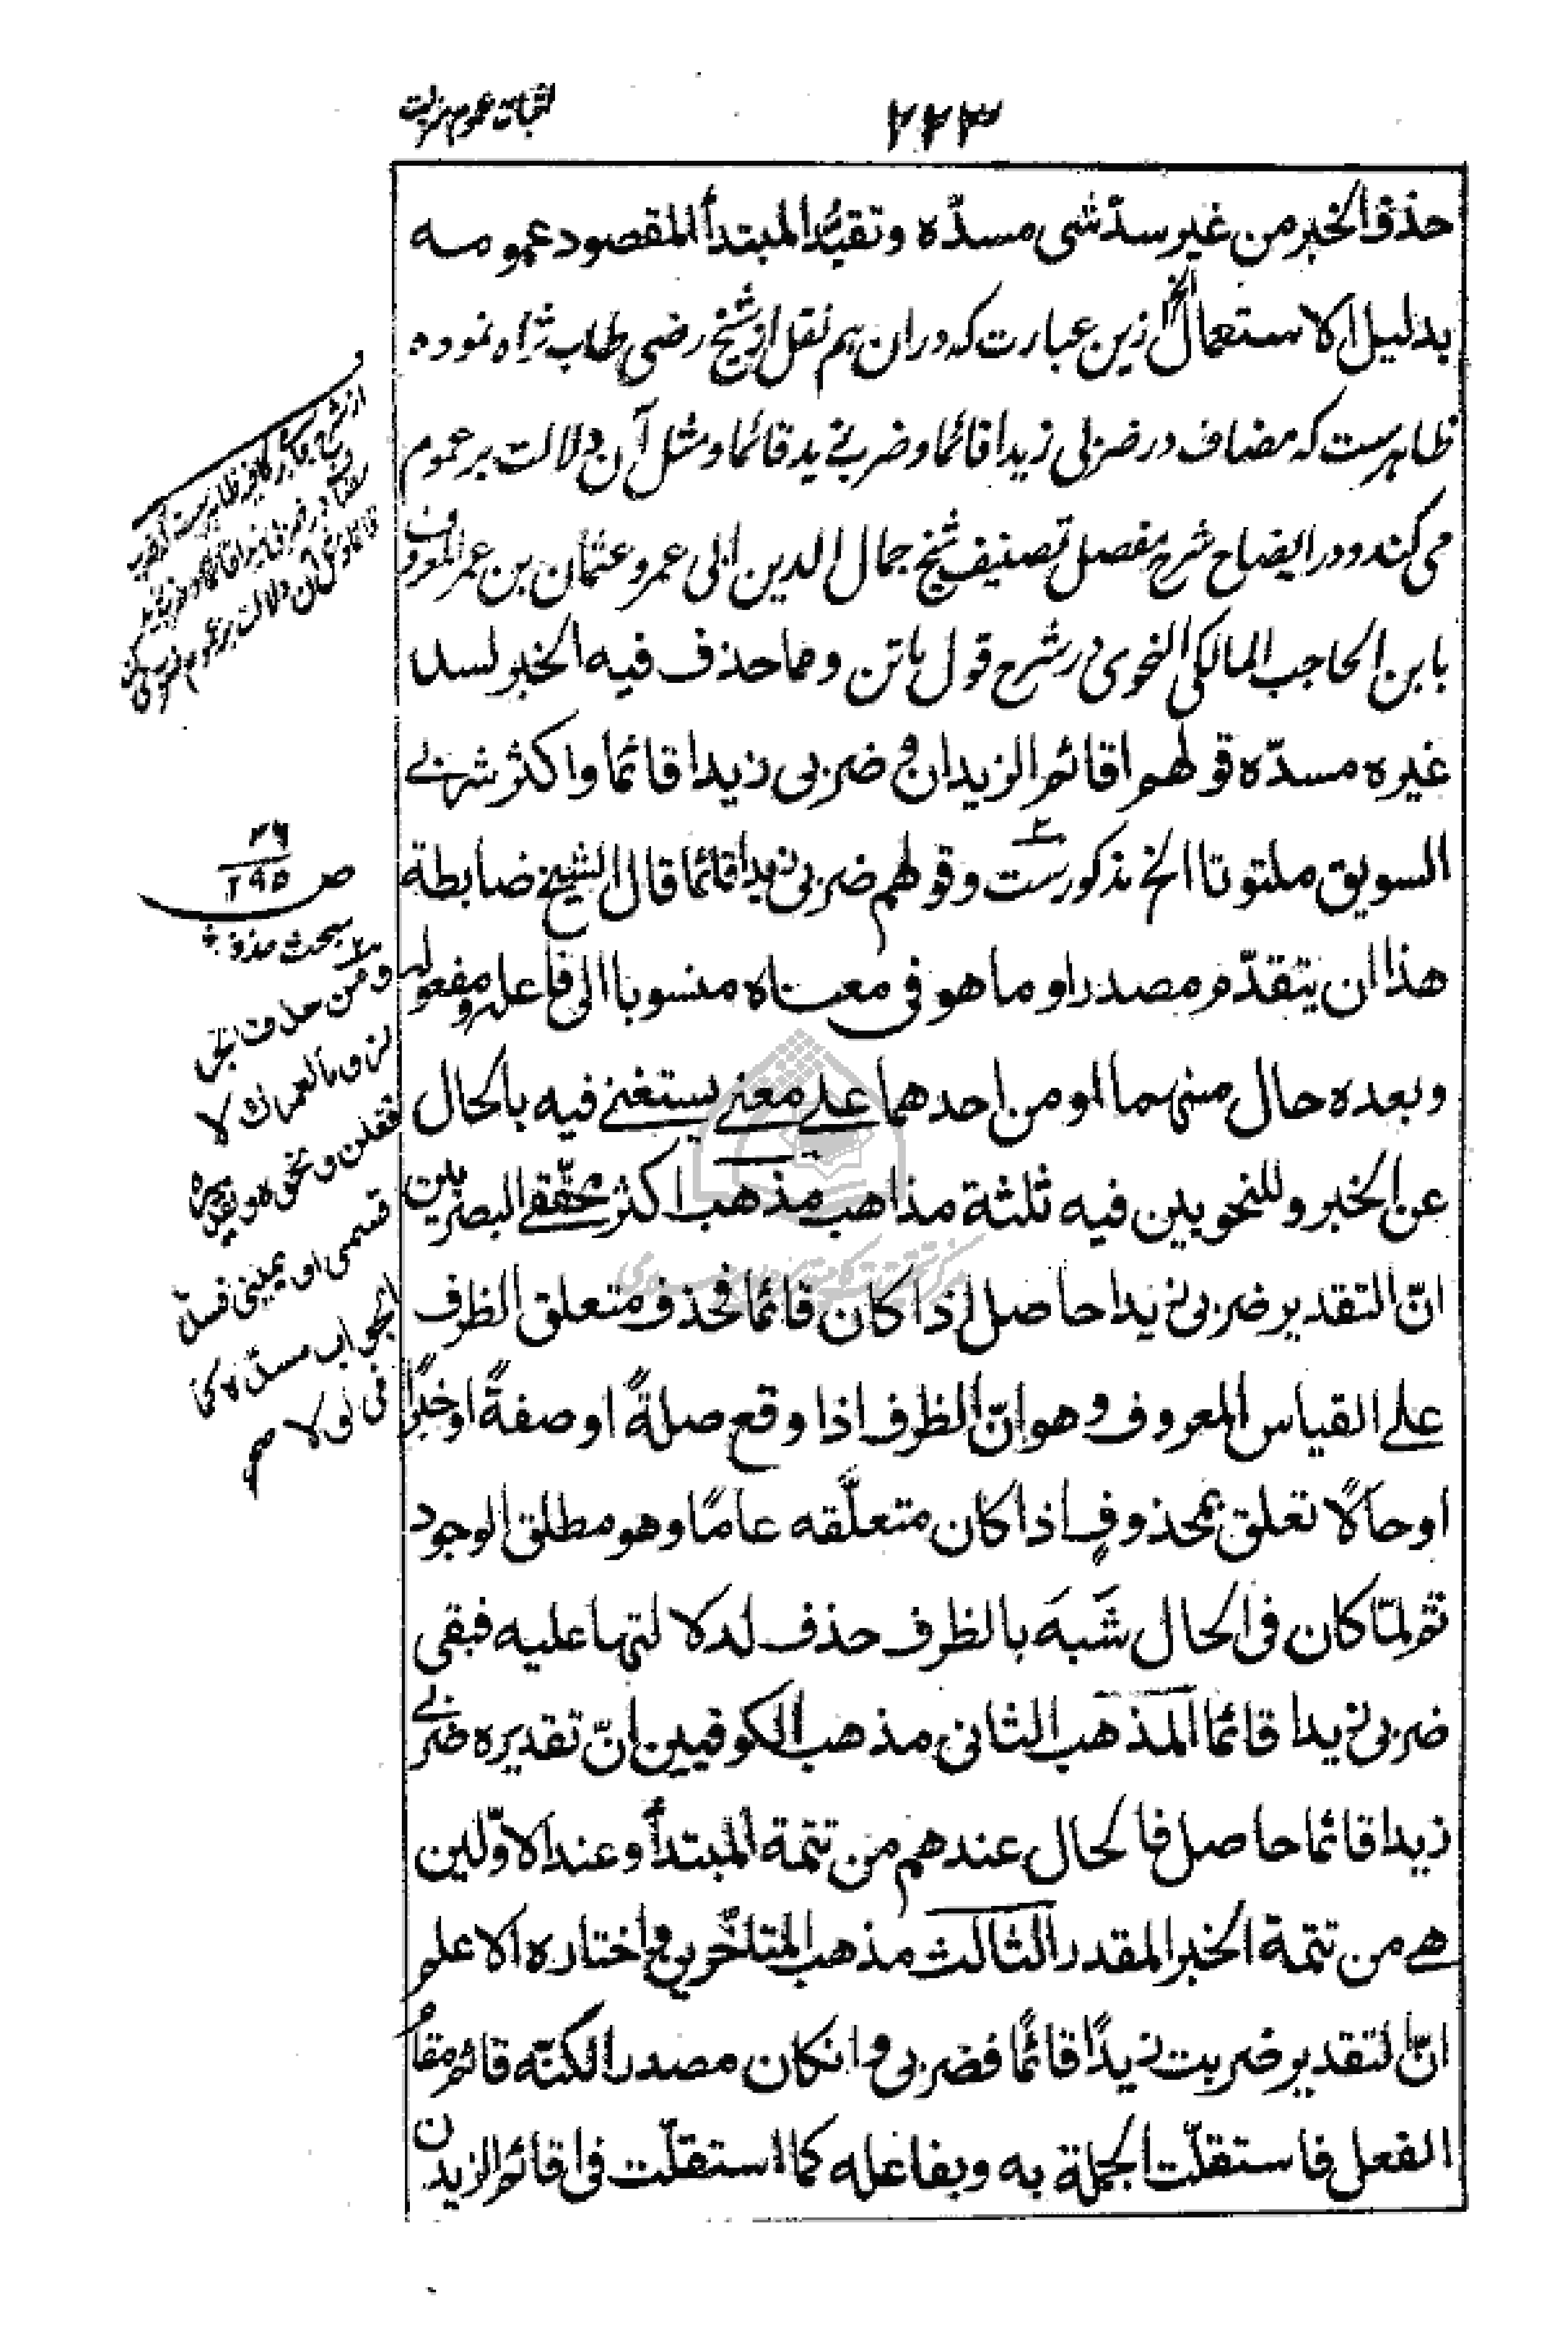 ۲۲۳
اثبات عموم منزلت
حذف الخبر من غير سدّ شی مسدّه وتقيُّد المبتدأ المقصود عمومه
بدليل الاستعمال الخ ازین عبارت که دران ہم نقل از شیخ رضی طاب ثراہ نموده
ظاہرست که مضاف در ضربی زیدا قائما و ضربی زید قائما و مثل آن دلالت بر عموم
می کند و در ایضاح شرح مفصل تصنیف شیخ جمال الدین ابی عمرو عثمان بن عمر المعروف
بابن الحاجب المالکی النحوی در شرح قول ماتن ومما حذف فيه الخبر لسد
غيره مسدّه قولهم اقائم الزيدان و ضربی زیدا قائما واكثر شربی
السويق ملتوتا الخ مذکورست وقولهم ضربی زيدا قائما قال الشيخ ضابطة
هذا ان يتقدّم مصدر او ما هو فی معناه منسوبا الی فاعله ومفعوله
وبعده حال منهما او من احدهما علی معنی يستغنی فيه بالحال
عن الخبر وللنحويين فيه ثلثة مذاهب مذهب اكثر محقّقی البصريين
انّ التقدير ضربی زيدا حاصل اذا كان قائما فحذف متعلق الظرف
علی القياس المعروف وهو انّ الظرف اذا وقع صلةً او صفةً او خبرًا
او حالًا تعلق بمحذوفٍ اذا كان متعلَّقه عامًا وهو مطلق الوجود
ثم لمّا كان فی الحال شَبَهَ بالظرف حذف لدلالتها عليه فبقی
ضربی زيدا قائما المذهب الثانی مذهب الكوفيين انّ تقديرَه ضربی
زيدا قائما حاصل فالحال عندهم من تتمة المبتدأ وعند الاوّلين
هی من تتمة الخبر المقدر الثالث مذهب المتأخّرين و اختاره الاعلم
انّ التقدير ضربت زيدًا قائمًا فضربی وانكان مصدرا لكنّه قائم مقام
الفعل فاستقلّت الجملة به وبفاعله كما استقلّت فی اقائم الزيدان
ظاہرست که
دلالت بر عموم
ص ۲۶
۲۹۵
مبحث حذف
ومن حذف الخبر
لعمرك لا
فعلن ونحوه وتقديره
قسمی او يمينی فسدّ
الجواب مسدّه كما
فی لولا